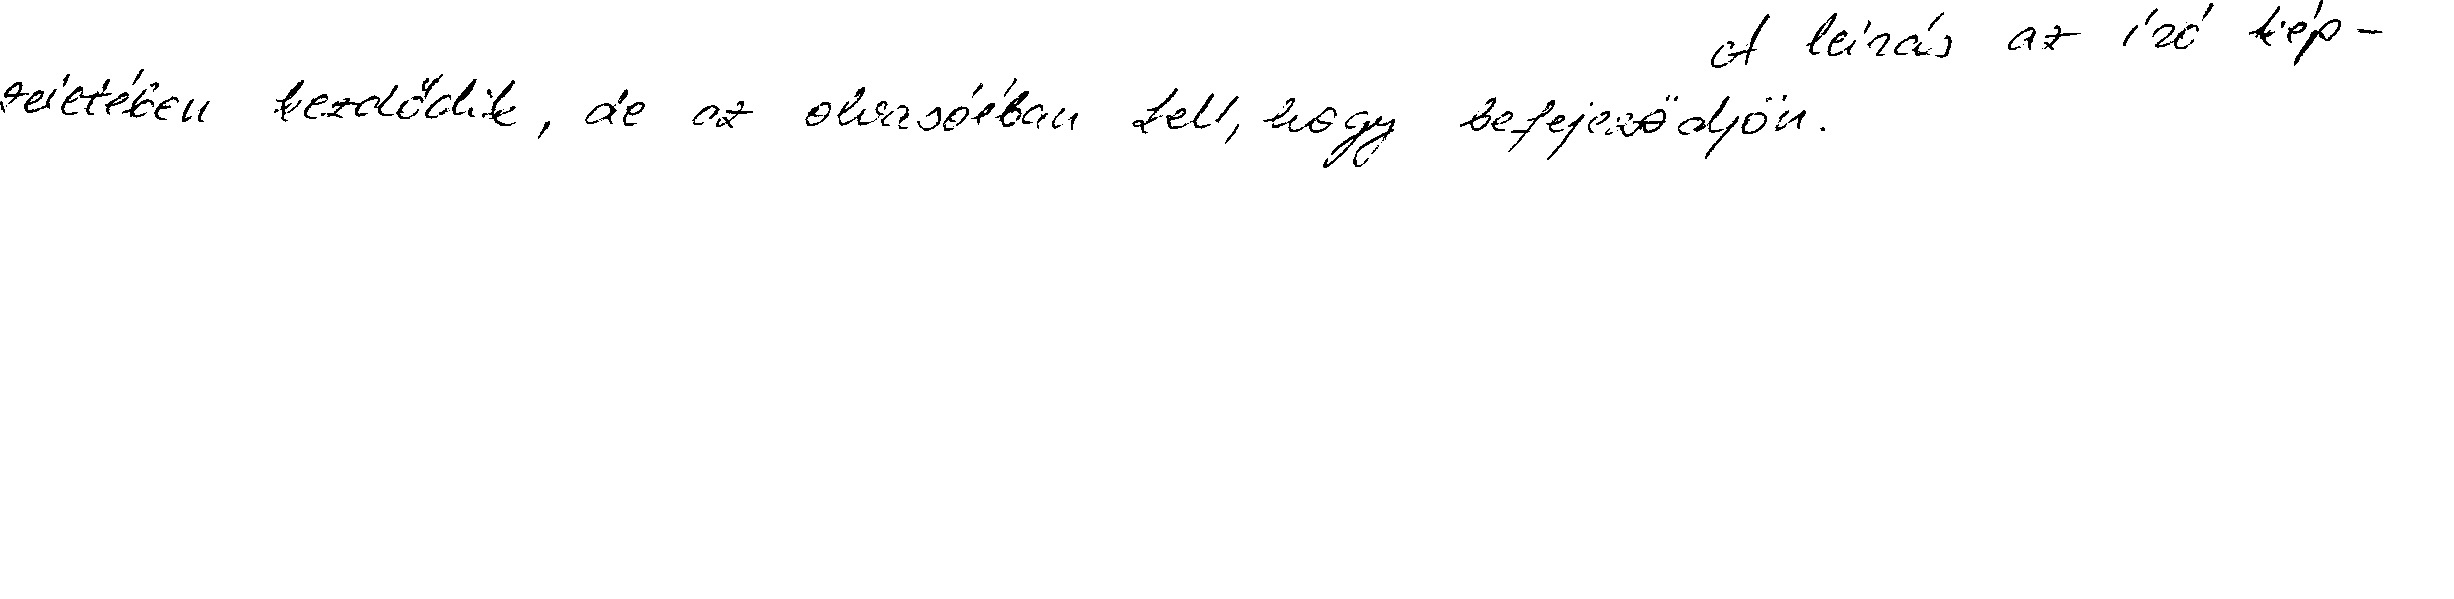 A leírás az író kép-
zeletében kezdődik, de az olvasóéban kell, hogy befejeződjön.